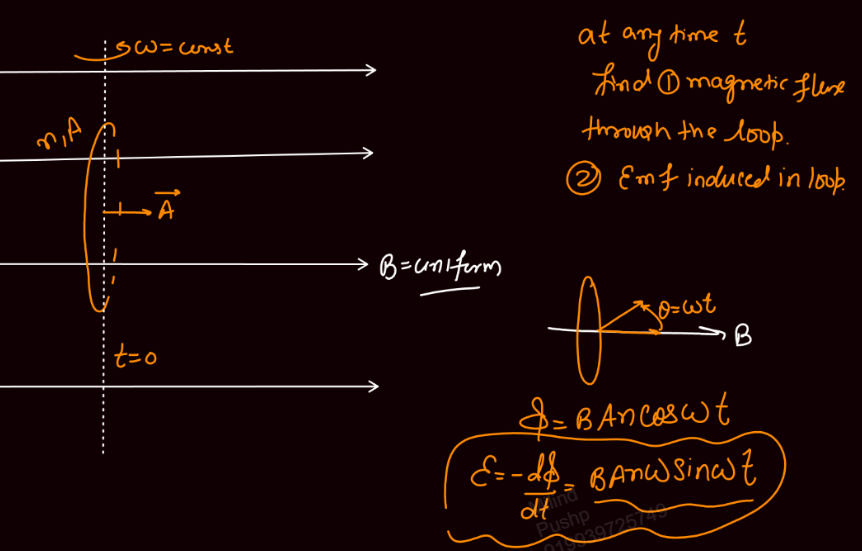 ω = const
n, A
→A
B = uniform
t = 0
at any time t
find ① magnetic flux
through the loop.
② Emf induced in loop.
θ = ωt
B
ϕ = BAn cos ωt
ℰ = -dϕ/dt = BAnω sin ωt
Pushp
919939725749